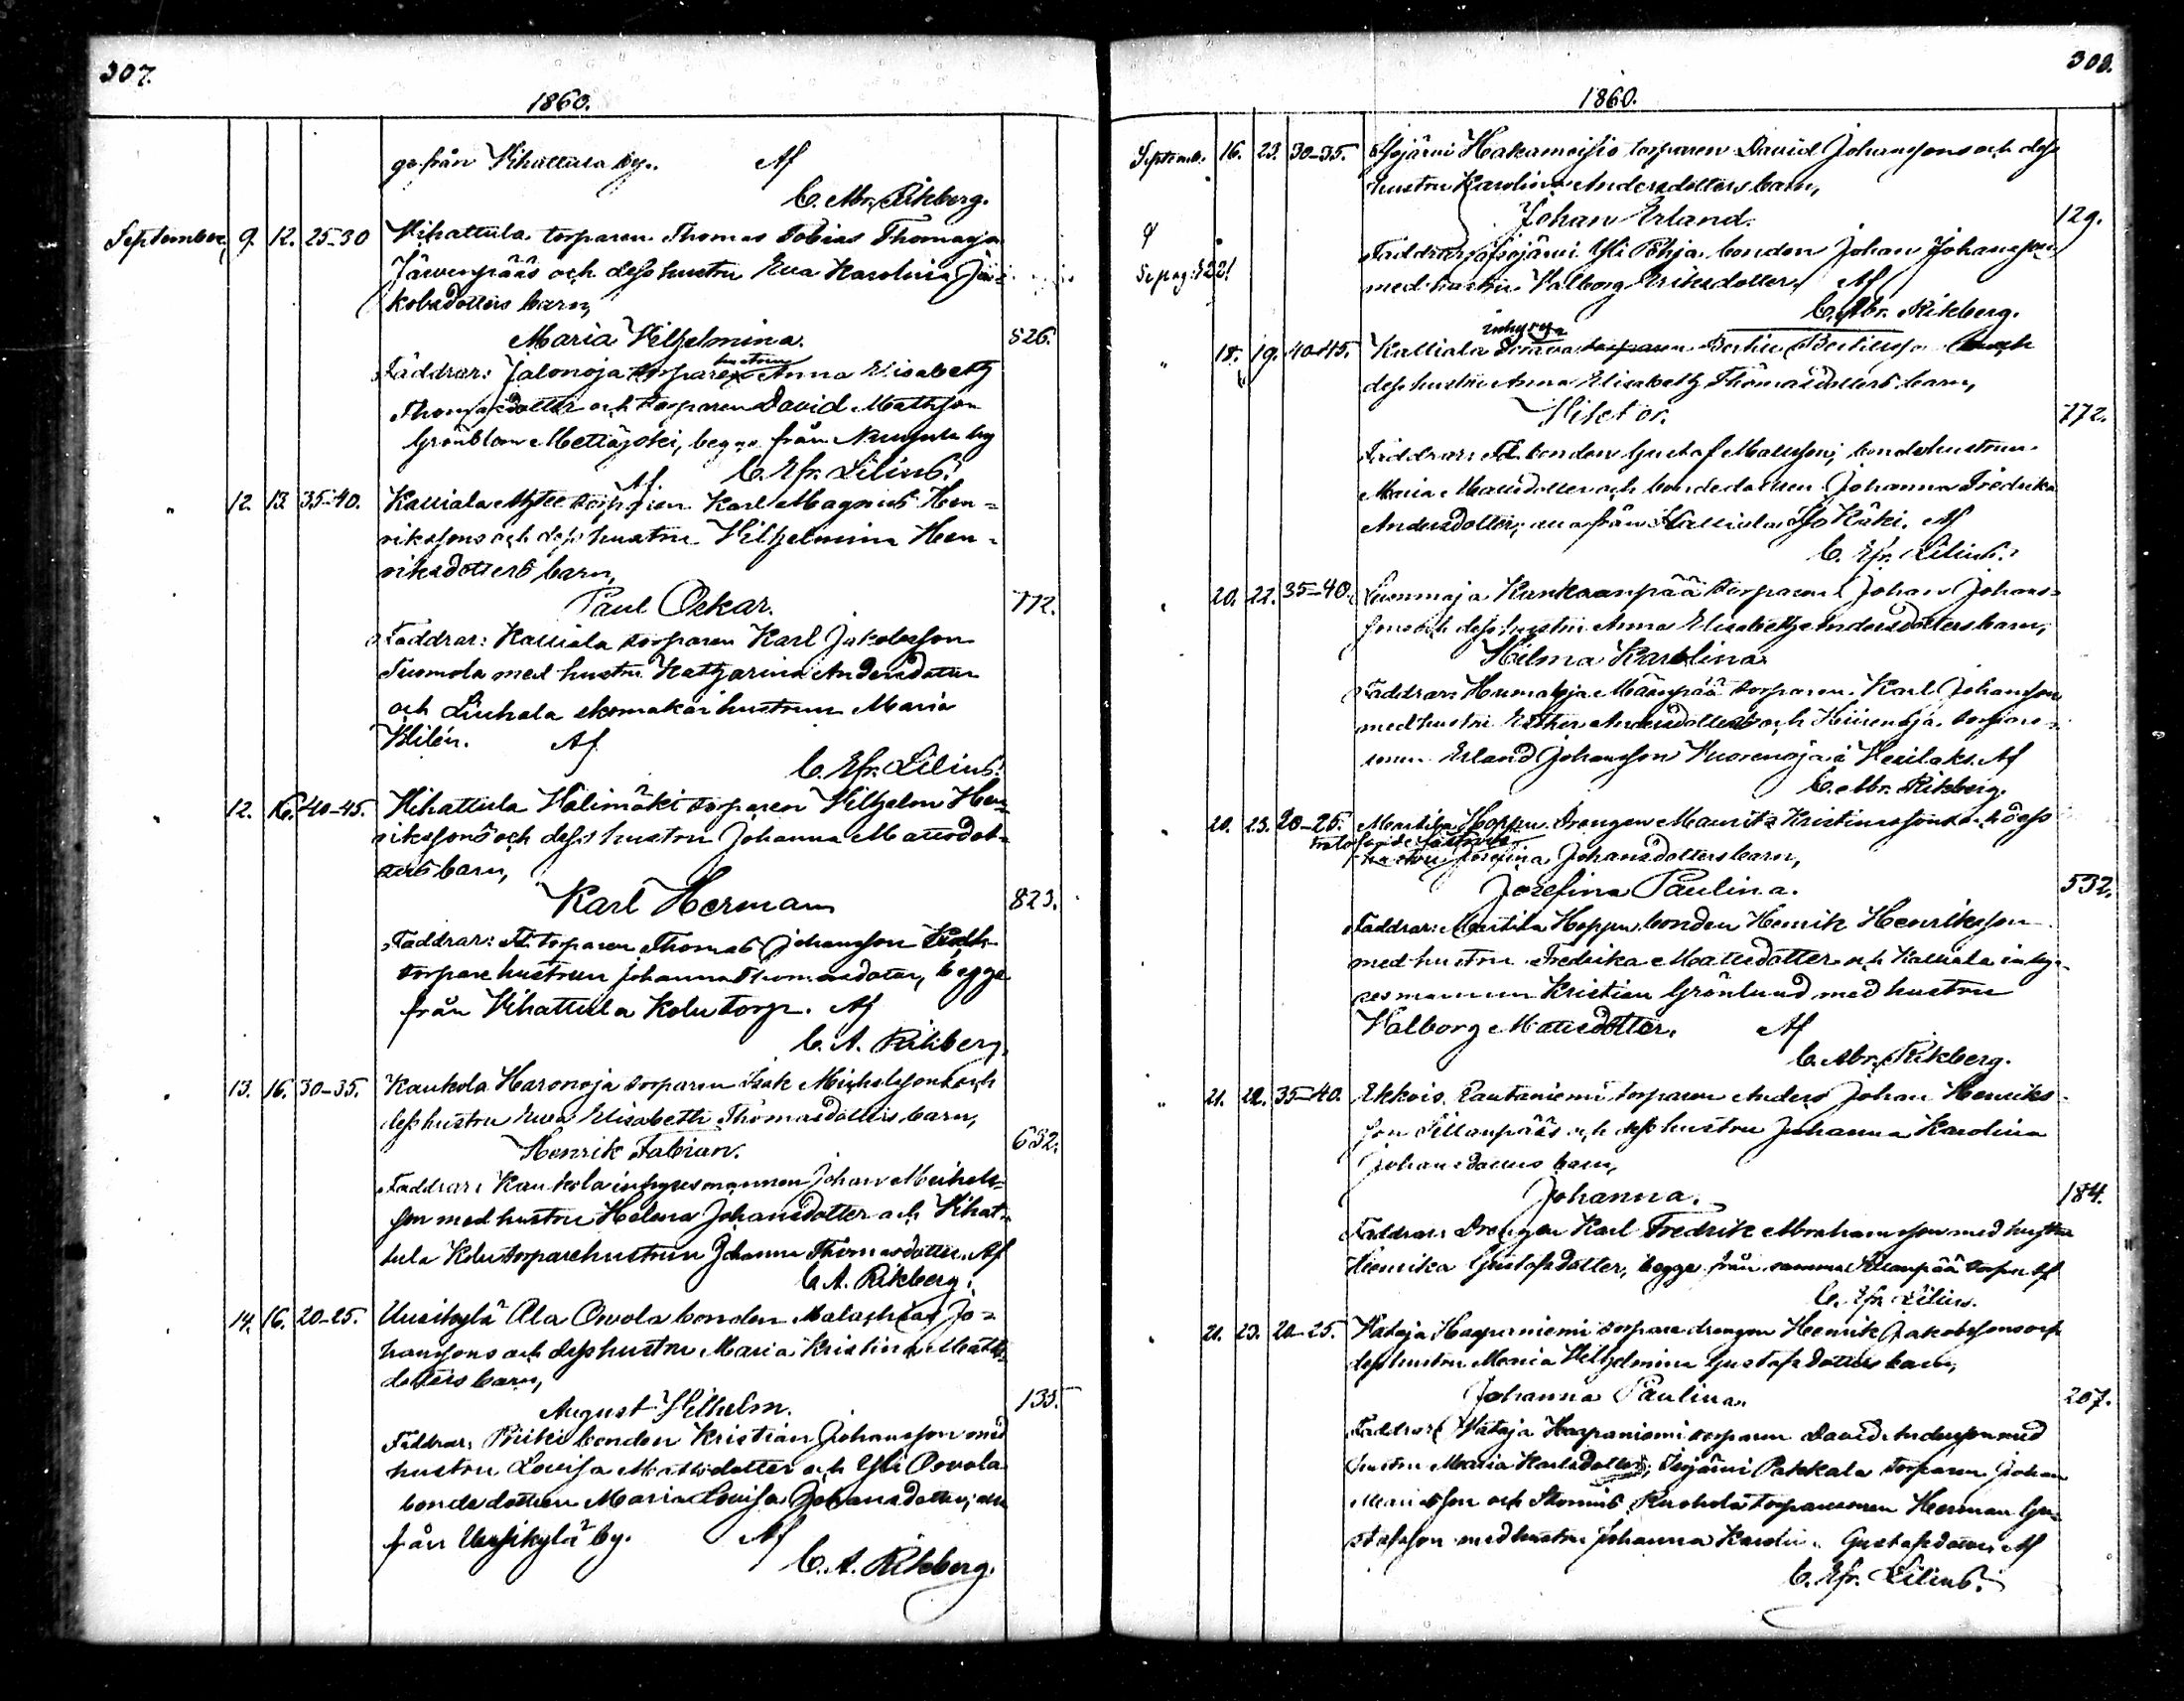 307.
1860.
ge från Vihattula by. Af
C. Abr. Rikberg.
September 9. 12. 25-30 Vihattula torparen Thomas Tobias Thomasson
Järvenpääs och dess hustru Eva Karolina Ja-
kobsdotters barn,
Maria Vilhelmina. 826.
hustrun
Faddrar: Jalonoja torpare Anna Elisabeth
Thomasdotter och torparen David Mattsson
Grönblom Mettäjoki, begge från by
Af C. Efr. Lilius.
" 12. 13. 35-40. Kalliala torparen Karl Magnus Hen=
rikssons och dess hustru Vilhelmina Hen=
riksdotters barn,
Paul Oskar. 772.
Faddrar: Kalliala torparen Karl Jakobsson
Tuomola med hustru Katharina Andersdotter
och Liuhala skomakarhustrun Maria
Af
C. Efr. Lilius.
" 12. 16. 40-45. Vihattula Välimäki torparen Vilhelm Hen-
rikssons och dess hustru Johanna Mattsdot-
ters barn,
Karl Herman 823.
Faddrar: Fd. torparen Thomas Johansson
torparehustrun Johanna Thomasdotter, begge
från Vihattula Kolu torp. Af
C. A. Rikberg.
" 13. 16. 30-35. Kaukola Haronoja torparen Isak Michelssons och
dess hustru Eva Elisabeth Thomasdotters barn,
Henrik Fabian. 632.
Faddrar: Kaukola inhysesmannen Johan Michels-
son med hustru Helena Johansdotter och Vihat-
tula Kolu torparehustrun Johanna Thomasdotter. Af
C. A. Rikberg.
" 14. 16. 20-25. Uusikylä Ala Orvola bonden Malachias Jo=
hanssons och dess hustru Maria Kristina Matts-
dotters barn,
August Vilhelm. 135.
Faddrar: Priiki bonden Kristian Johansson med
hustru Lovisa Mattsdotter och Yli Orvola
bondedottren Maria Lovisa Johansdotter, alla
från Uusikylä by. Af
C. A. Rikberg.
308.
1860.
Septemb. 16. 23. 30-35. Isojärvi Hakamoisio torparen David Johanssons och dess
hustru Karolina Andersdotters barn,
Johan Erland. 129.
Faddrar: Isojärvi Yli Pohja bonden Johan Johansson
Se pag: 322!
med hustru Valborg Eriksdotter. Af
C. Abr. Rikberg.
inhyses
" 18. 19. 40-45. Kalliala torparen Bertil Bertilsson och
dess hustru Anna Elisabeth Thomasdotters barn,
Viktor. 772.
Faddrar: Fd. bonden Gustaf Mattsson, bondehustrun
Maria Mattsdotter och bondedottren Johanna Fredrika
Andersdotter, alla från Kalliala Iso Käki. Af
C. Efr. Lilius.
" 20. 22. 35-40. Kankaanpää torparen Johan Johans-
sons och dess hustru Anna Elisabeth Andersdotters barn,
Hilma Karolina
Faddrar: Humaloja Mäenpää torparen Karl Johansson
med hustru Esther Andersdotter och torpare-
sonen Erland Johansson Vuorenoja i Vesilaks. Af
C. Abr. Rikberg.
" 20. 23. 20-25. Marttila Hoppu Drängen Maurits Kristianssons och dess
trolofvade
hustru Josefina Johansdotters barn,
Josefina Paulina. 532.
Faddrar: Marttila Hoppu bonden Henrik Henriksson
med hustru Fredrika Mattsdotter och Kalliala inhy-
sesmannen Kristian Grönlund med hustru
Valborg Mattsdotter. Af
C. Abr. Rikberg.
" 21. 22. 35-40. Ekkois Rautaniemi torparen Anders Johan Henriks-
son Sillanpääs och dess hustru Johanna Karolina
Johansdotters barn,
Johanna. 184.
Faddrar: Drängen Karl Fredrik Abrahamsson med hustru
Henrika Gustafsdotter, begge från samma Sillanpää torp. Af
C. Efr. Lilius.
" 21. 23. 20-25. Hataja Haapaniemi torpare drängen Henrik Jakobssons och
dess hustru Maria Vilhelmina Gustafsdotters barn,
Johanna Paulina. 207.
Faddrar: Hataja Haapaniemi torparen David Andersson med
hustru Maria Karlsdotter, Isojärvi Pakkala torparen Johan
och Ruohola torparesonen Herman Gu-
stafsson med hustru Johanna Karolina Gustafsdotter. Af
C. Efr. Lilius.